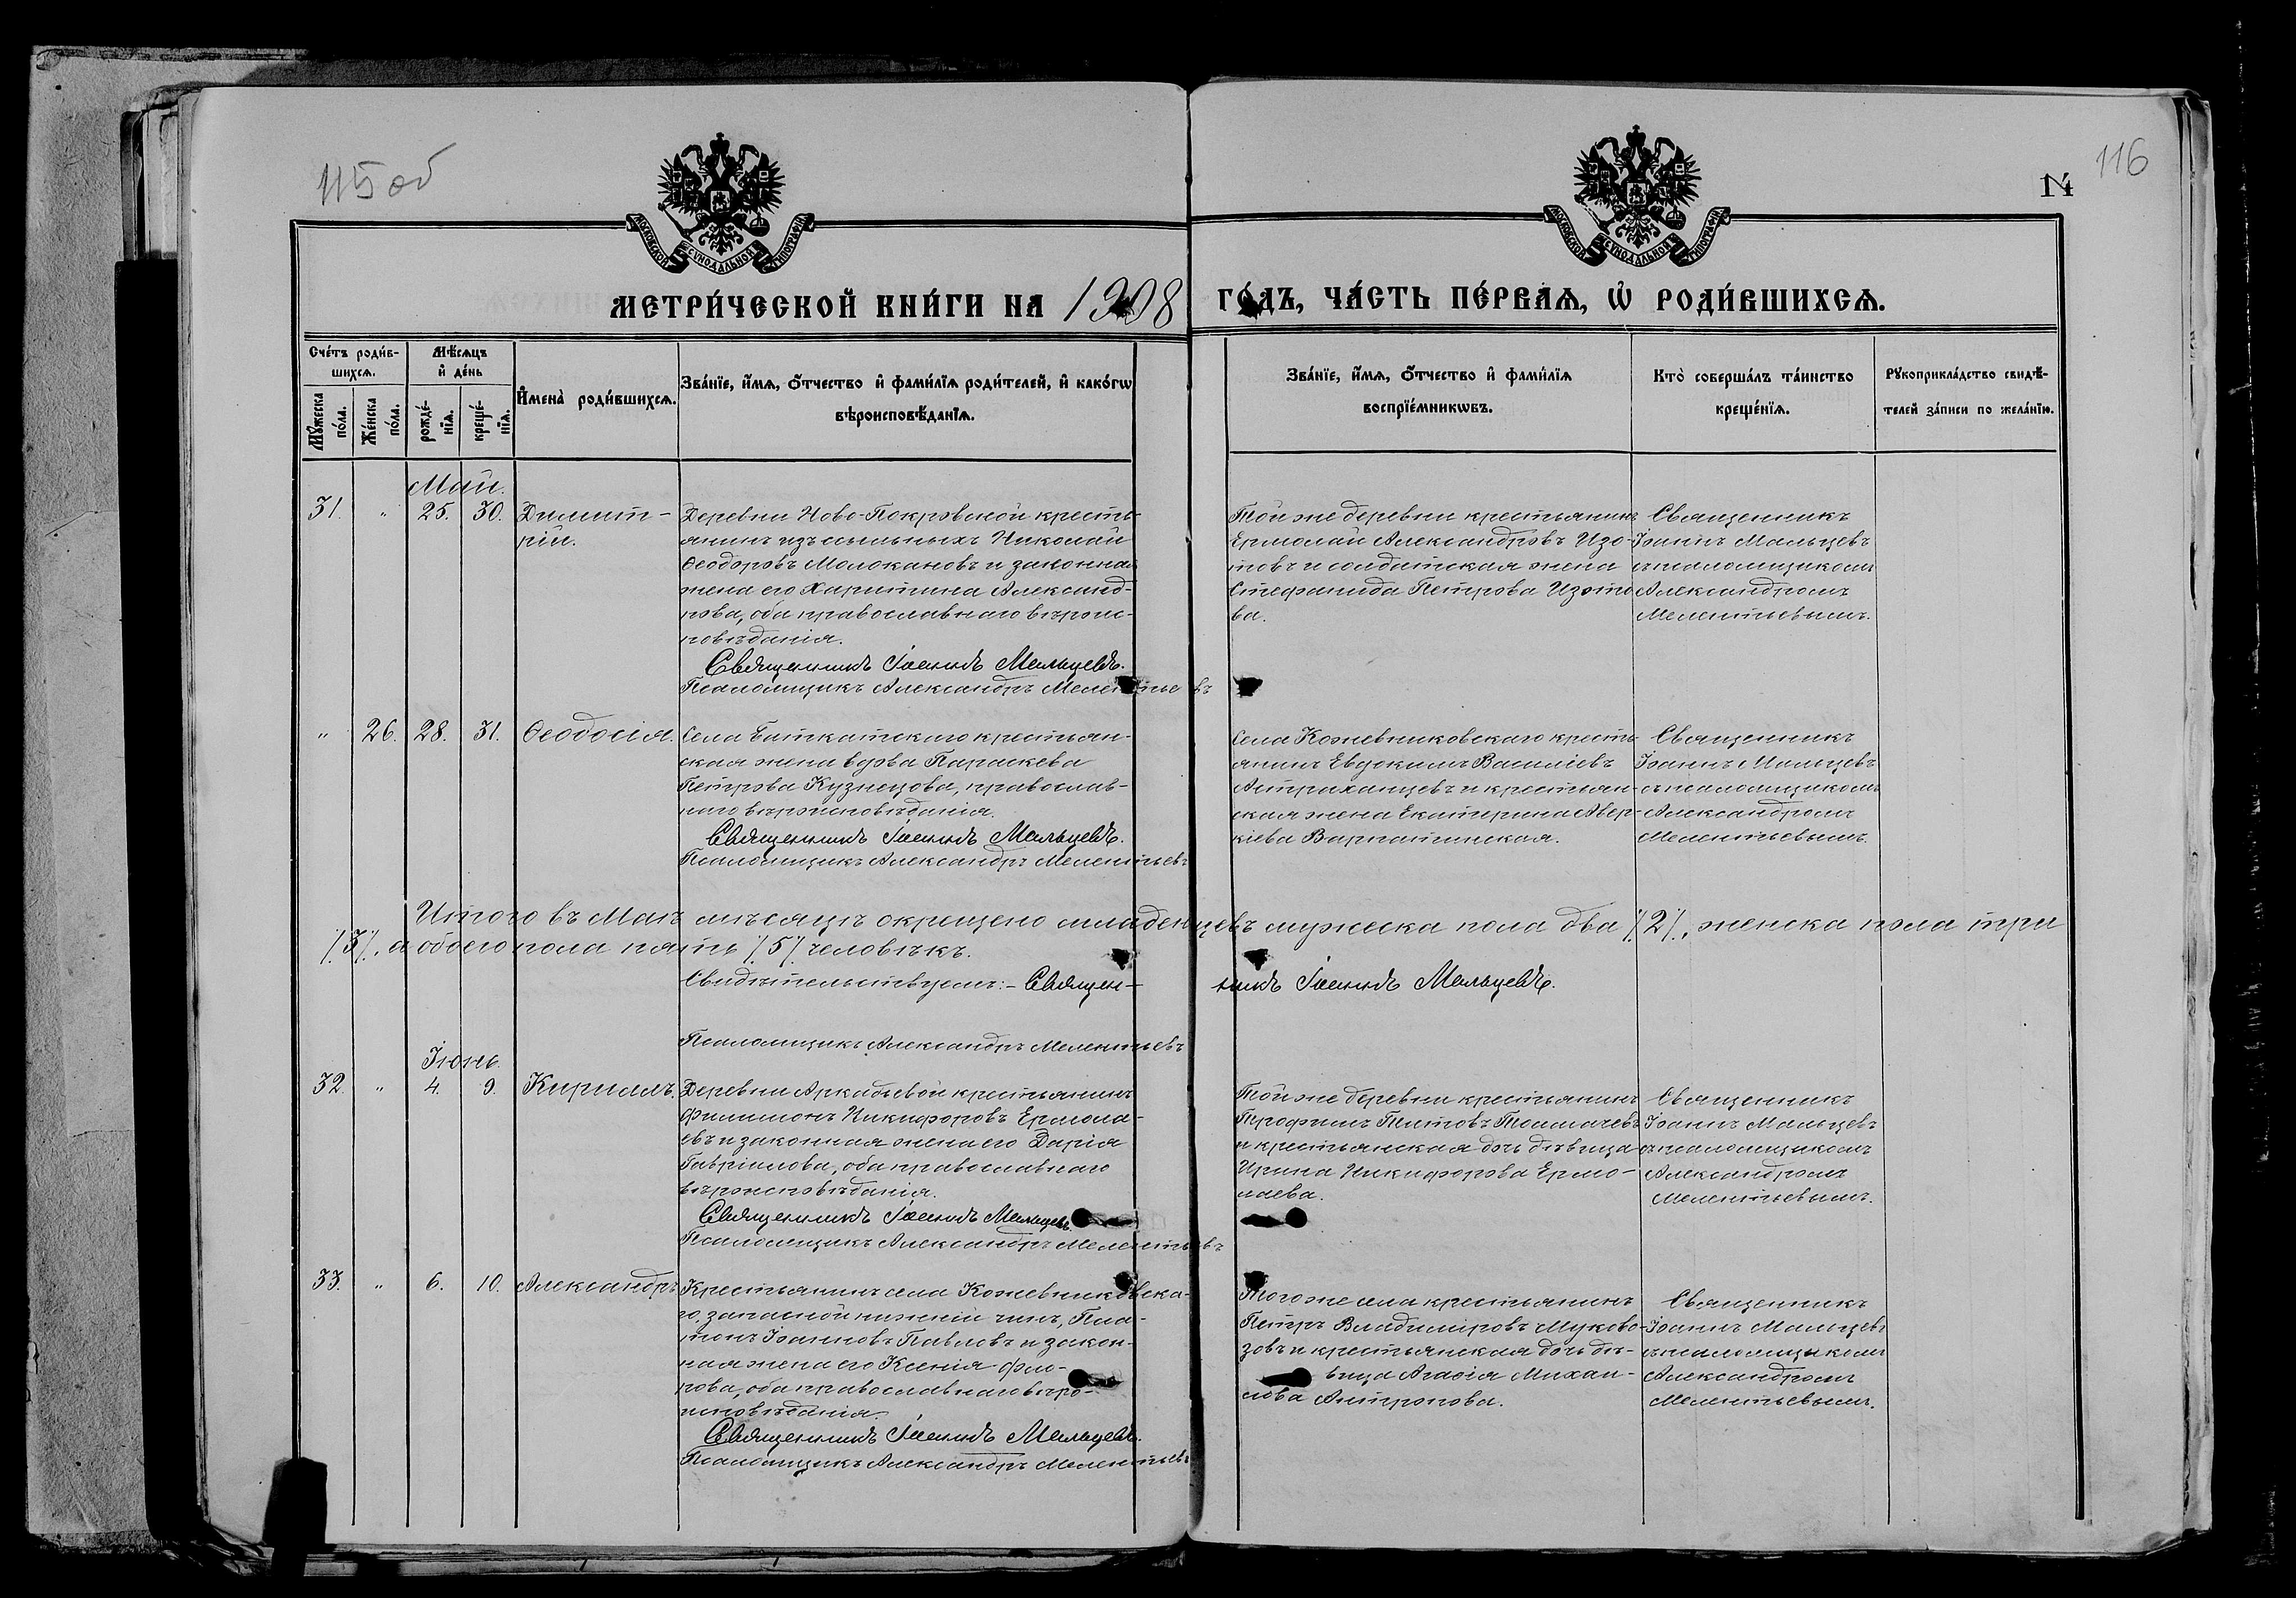 115 об
116
14
МОСКОВСКОЙ СѴНОДАЛЬНОЙ ТИПОГРАФІИ
МОСКОВСКОЙ СѴНОДАЛЬНОЙ ТИПОГРАФІИ
МЕТРИ́ЧЕСКОЙ КНИ́ГИ НА 1908 ГО́ДЪ, ЧА́СТЬ ПЕ́РВАѦ, Ѽ РОДИ́ВШИХСѦ.
Сче́тъ роди́в-
шихсѧ.
Мꙋ́жеска по́ла.
Же́нска по́ла.
Мѣ́сѧцъ
и҆ де́нь
рожде́-
нїѧ.
креще́-
нїѧ.
И҆мена̀ роди́вшихсѧ.
Зва́нїе, и҆́мѧ, ѻ҆́тчество и҆ фами́лїѧ роди́телей, и҆ како́гѡ
вѣроисповѣ́данїѧ.
Зва́нїе, и҆́мѧ, ѻ҆́тчество и҆ фами́лїѧ
воспрїе́мникѡвъ.
Кто̀ соверша́лъ та́инство
креще́нїѧ.
Рꙋкоприкла́дство свидѣ́-
телей за́писи по жела́нїю.
Май.
31. " 25. 30. Димит-
рій.
Деревни Ново-Покровской кресть-
янинъ изъ ссыльныхъ Николай
Ѳеодоровъ Молокановъ и законная
жена его Харитина Александ-
рова, оба православнаго вѣроис-
повѣданія.
Священникъ Іоаннъ Мальцевъ.
Псаломщикъ Александръ Мелентьевъ
Той же деревни крестьянинъ
Ермолай Александровъ Изо-
товъ и солдатская жена
Стефанида Петрова Изото
ва.
Священникъ
Іоаннъ Мальцевъ
съ псаломщикомъ
Александромъ
Мелентьевымъ.
" 26. 28. 31. Ѳеодосія.
Села Баткатскаго крестьян-
ская жена вдова Параскева
Петрова Кузнецова, православ-
наго вѣроисповѣданія.
Священникъ Іоаннъ Мальцевъ.
Псаломщикъ Александръ Мелентьевъ
Села Кожевниковскаго кресть-
янинъ Евдокимъ Василіевъ
Астраханцевъ и крестьян-
ская жена Екатерина Авер-
кіева
Священникъ
Іоаннъ Мальцевъ
съ псаломщикомъ
Александромъ
Мелентьевымъ.
Итого въ Маѣ мѣсяцѣ окрещено младенцевъ мужеска пола два /2/, женска пола три
/3/, а обоего пола пять /5/ человѣкъ.
Свидѣтельствуемъ:- Священникъ Іоаннъ Мальцевъ.
Псаломщикъ Александръ Мелентьевъ
Іюнь.
32. " 4. 9. Кириллъ.
Деревни Аркадьевой крестьянинъ
Филимонъ Никифоровъ Ермола-
евъ и законная жена его Дарія
Гавріилова, оба православнаго
вѣроисповѣданія.
Священникъ Іоаннъ Мальцевъ.
Псаломщикъ Александръ Мелентьевъ
Той же деревни крестьянинъ
Трофимъ Титовъ Толмачевъ
и крестьянская дочь дѣвица
Ирина Никифорова Ермо-
лаева.
Священникъ
Іоаннъ Мальцевъ
съ псаломщикомъ
Александромъ
Мелентьевымъ.
33. " 6. 10. Александръ
Крестьянинъ села Кожевниковска-
го, запасной нижній чинъ, Пла-
тонъ Іоанновъ Павловъ и закон-
ная жена его Ксенія Фло-
рова, оба православнаго вѣро-
исповѣданія.
Священникъ Іоаннъ Мальцевъ.
Псаломщикъ Александръ Мелентьевъ
Того же села крестьянинъ
Петръ Владиміровъ Муково-
зовъ и крестьянская дочь дѣ-
вица Агаѳія Михаи-
лова Антропова.
Священникъ
Іоаннъ Мальцевъ
съ псаломщикомъ
Александромъ
Мелентьевымъ.